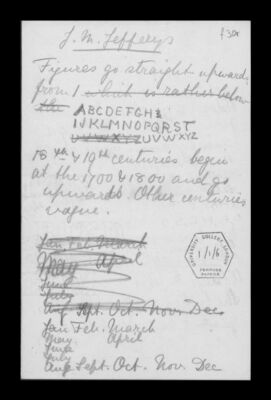 f3r
J. M. Jefferys
Figures go straight upwards
from 1 which is rather below
the
ABCDEFGHI
IJKLMNOPQRST
UVWXYZ UVWXYZ
18th & 19th centuries begin
at the 1700 & 1800 and go
upwards. Other centuries
vague.
Jan Feb. March
May April
June
July
Aug Sept. Oct. Nov. Dec
Jan Feb. March
May. April
June
July
Aug Sept. Oct. Nov. Dec
UNIVERSITY COLLEGE LONDON
1/1/6
PEARSON PAPERS